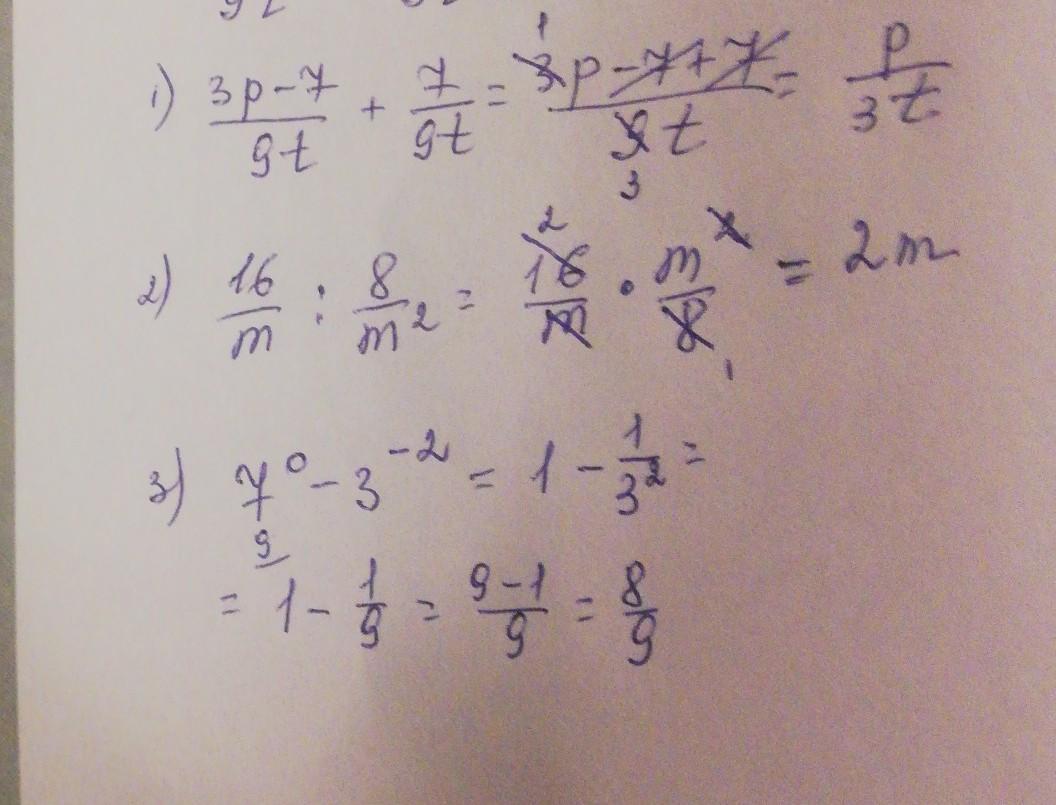 1) (3p-7)/(9t) + 7/(9t) = (3p-7+7)/(9t) = p/(3t)
2) 16/m : 8/m² = 16/m · m²/8 = 2m
3) 7⁰ - 3⁻² = 1 - 1/3² =
= 1 - 1/9 = (9-1)/9 = 8/9